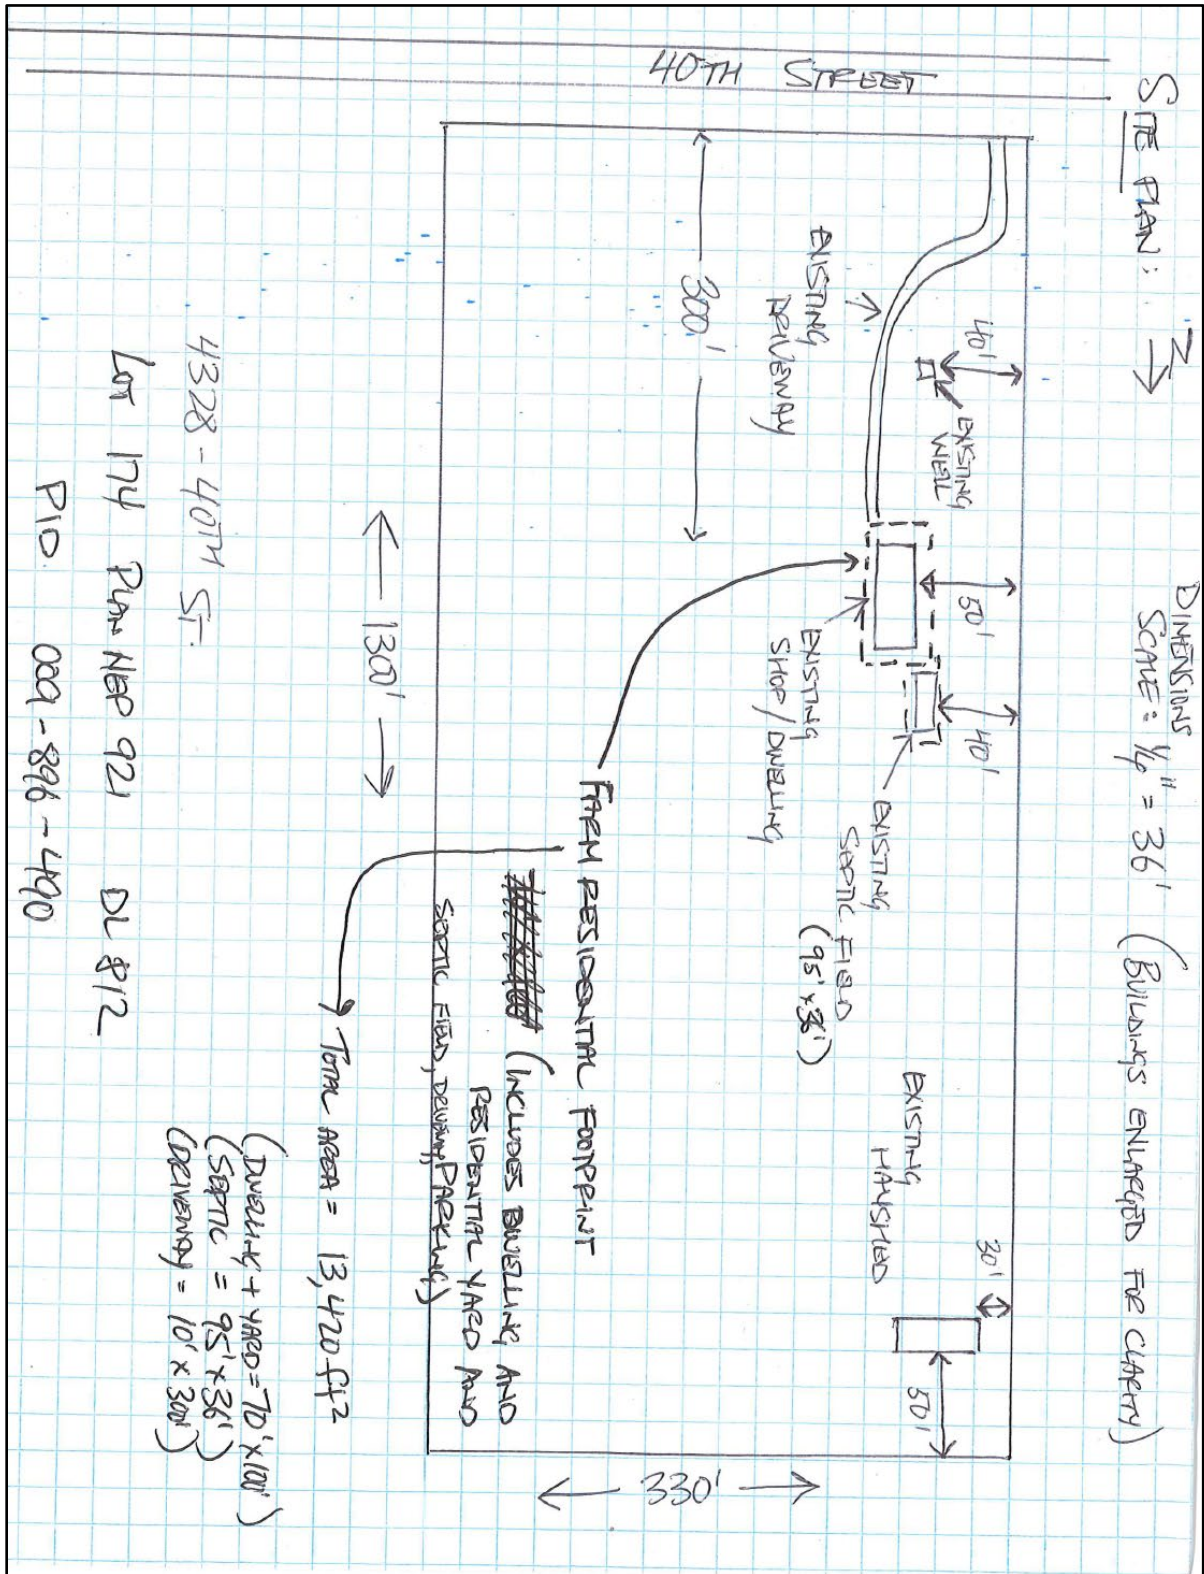 SITE PLAN:
N
DIMENSIONS
SCALE: 1/4" = 36' (BUILDINGS ENLARGED FOR CLARITY)
40TH STREET
40'
EXISTING
WELL
EXISTING
DRIVEWAY
300'
50'
40'
EXISTING
SHOP/DWELLING
EXISTING
SEPTIC FIELD
(95' x 36')
EXISTING
HAYSHED
30'
50'
330'
FARM RESIDENTIAL FOOTPRINT
(INCLUDES DWELLING AND
RESIDENTIAL YARD AND
SEPTIC FIELD, DRIVEWAY, PARKING)
1300'
TOTAL AREA = 13,420 ft2
(DWELLING + YARD = 70' x 100')
(SEPTIC = 95' x 36')
(DRIVEWAY = 10' x 300')
4328 - 40TH ST.
LOT 174 PLAN NEP 921 DL 812
PID 009-896-490